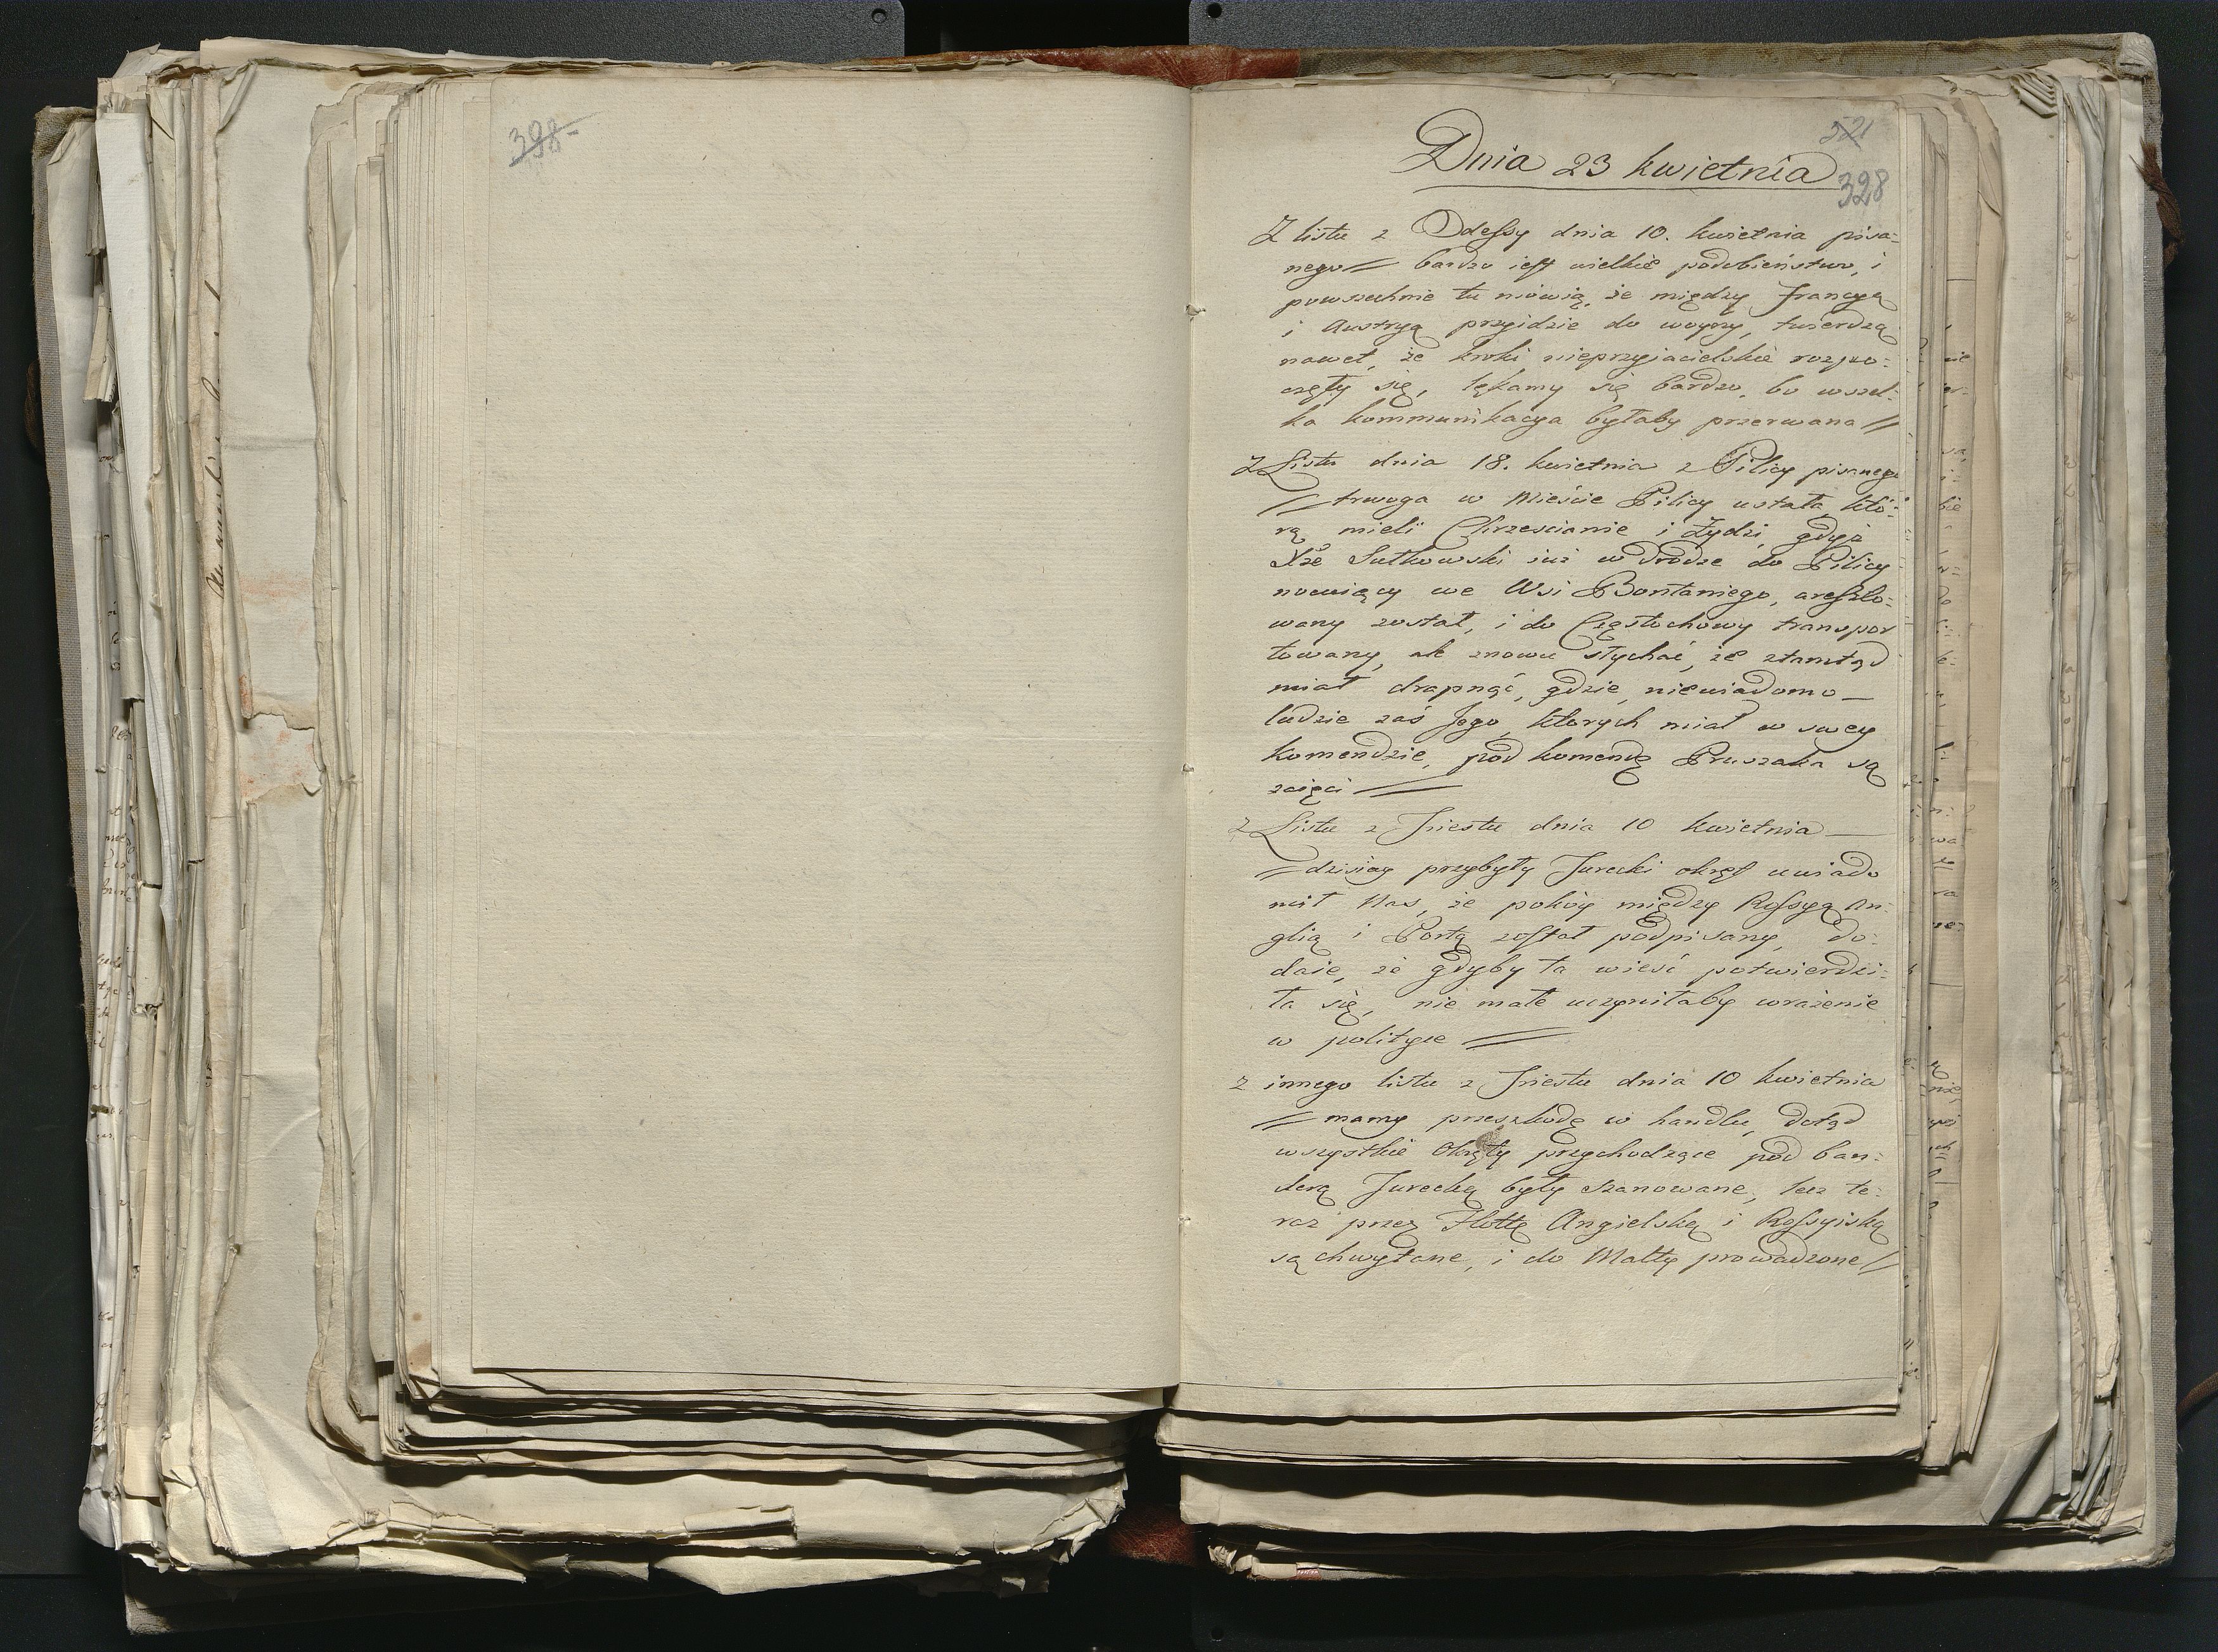 398
521
Dnia 23 kwietnia
328
Z listu z Odessy dnia 10. kwietnia pisa=
nego // bardzo iest wielkie podobieństwo, i
powszechnie tu mówią, że między Francyą
i Austryą przyidzie do woyny, twierdzą
nawet, że kroki nieprzyjacielskie rozpo=
częły się, lękamy się bardzo, bo wszel=
ka kommunikacya byłaby przerwana //
Z Listu dnia 18. kwietnia z Pilicy pisanego
// trwoga w Mieście Pilicy ustała, któ=
rą mieli Chrzescianie i Żydzi, gdyż
Xże Sułkowski iuż w drodze do Pilicy
nocuiący we Wsi Bontaniego, areszto=
wany został, i do Częstochowy transpor
towany, ale znowu słychać, że ztamtąd
miał drapnąć, gdzie, niewiadomo —
ludzie zaś Jego, których miał w swey
komendzie, pod komendę Pruszaka są
zaięci //
Z Listu z Triestu dnia 10 kwietnia —
// dzisiay przybyły Turecki okręt uwiado
mił Nas, że pokóy między Rossyą An=
glią i Portą został podpisany, do=
daie, że gdyby ta wieść potwierdzi=
ła się, nie małe uczyniłaby wrażenie
w polityce //
Z innego listu z Triestu dnia 10 kwietnia
// mamy przeszkodę w handlu, dotąd
wszystkie Okręty przychodzące pod ban=
derą Turecką były szanowane, lecz te=
raz przez Flottę Angielską i Rossyiską
są chwytane, i do Malty prowadzone //